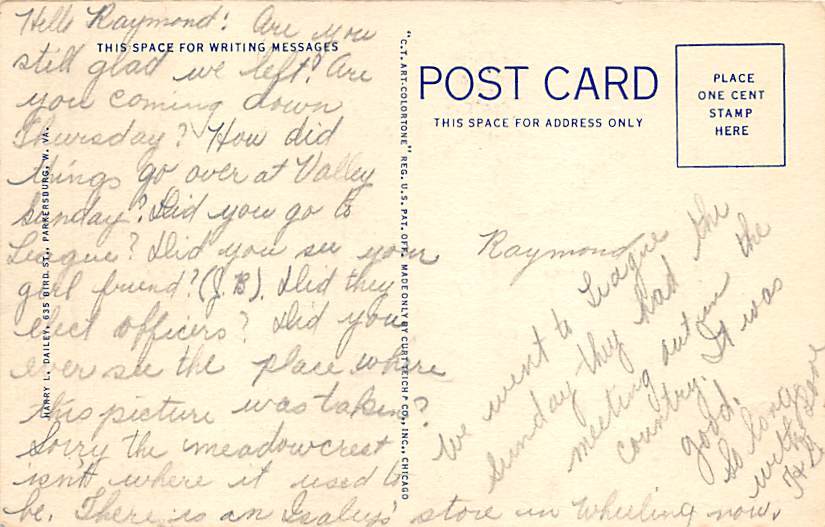 Hello Raymond: Are you
THIS SPACE FOR WRITING MESSAGES
still glad we left? Are
you coming down
Thursday? How did
things go over at Valley
Sunday? Did you go to
League? Did you see your
girl friend? (J.B). Did they
elect officers? Did you
ever see the place where
this picture was taken?
Sorry the meadowcrest
isn't where it used to
be. There is an Isaly's store in Wheeling now.
HARRY L. DAILEY, 635 BIRD ST., PARKERSBURG, W. VA.
"C.T. ART-COLORTONE" REG. U.S. PAT. OFF. MADE ONLY BY CURT TEICH & CO., INC., CHICAGO
POST CARD
THIS SPACE FOR ADDRESS ONLY
PLACE
ONE CENT
STAMP
HERE
Raymond
We went to League
Sunday they had the
meeting out in the
country. It was
good.
So long
with love